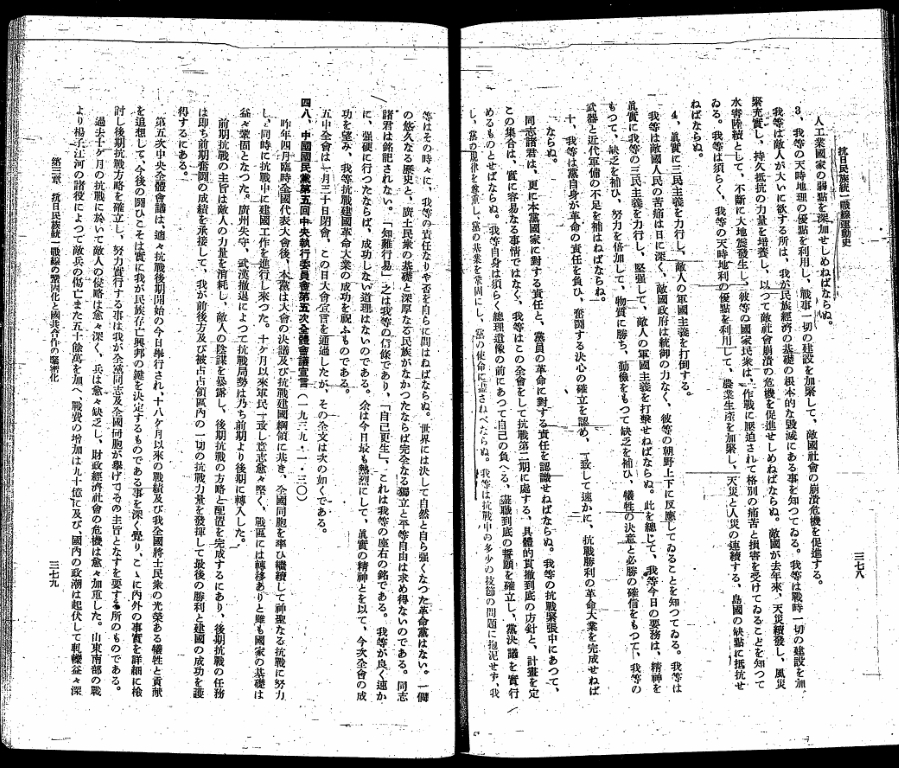 抗日民族統一戰線運動史
三七八
人工業國家の弱點を深加せしめねばならぬ。
3、我等の天時地理の優點を利用し、戰事一切の建設を加緊して、敵國社會の崩潰危機を促進する。
我等は敵人が大いに欲する所は、我が民族經濟の基礎の根本的な毀滅にある事を知つてゐる。我等は戰時一切の建設を加
緊充實し、持久抵抗の力量を培養し、以つて敵社會崩潰の危機を促進せしめねばならぬ。敵國が去年來、天災續發し、風災
水害踵續として、不斷に大地震發生し、彼等の國家民衆は、作戰に壓迫されて格別の痛苦と損害を受けてゐることを知つて
ゐる。我等は須らく、我等の天時地利の優點を利用して、農業生產を加緊し、天災と人災の連續する、島國の缺點に抵抗せ
ねばならぬ。
4、眞實に三民主義を力行し、敵人の軍國主義を打倒する。
我等は敵國人民の苦痛は日に深く、敵國政府は統御の力なく、彼等の朝野上下に反應してゐることを知つてゐる。我等は
眞實に我等の三民主義を力行し、堅強して、敵人の軍國主義を打擊せねばならぬ。此を總じて、我等今日の要務は、精神を
もつて、缺乏を補ひ、努力を倍加して、物質に勝ち、勤儉をもつて缺乏を補ひ、犧牲の決意と必勝の確信をもつて、我等の
武器と近代軍備の不足を補はねばならぬ。
十、我等は黨自身が革命の責任を負ひ、奮鬪する決心の確立を認め、一致して速かに、抗戰勝利の革命大業を完成せねば
ならぬ。
同志諸君は、更に本黨國家に對する責任と、黨員の革命に對する責任を認識せねばならぬ。我等の抗戰緊張中にあつて、
この集合は、實に容易なる事情ではなく、我等はこの全會をして抗戰第二期に處する、具體的貫徹到底の方針と、計畫を定
めるものとせばならぬ。我等自身は須らく、總理遺像の前にあつて自己の負へる、盡職到底の誓願を確立し、黨決議を實行
し、黨の規律を尊重し、黨の基業を鞏固にし、黨の使命に盡さねばならぬ。我等は抗戰中の多少の技節の問題に拘泥せず、我
等はその時々に、我等の責任なりや否を自らに問はねばならぬ。世界には決して自然と自ら強くなつた革命黨はない。一個
の悠久なる歷史と、廣土民衆の基礎と深厚なる民族がなかつたならば完全なる獨立と平等自由は求め得ないのである。同志
諸君は銘記されたい。「知難行易」一之は我等の信條であり、「自己更生」、これは我等の座右の銘である。我等が良く速か
に、強硬に行つたならば、成功しない道理はないのである。余は今日最も熱烈にして、眞實の精神とを以て、今次全會の成
功を望み、我等抗戰建國革命大業の成功を祝ふものである。
五中全會は一月三十日閉會、この日大會宣言を通過したが、その全文は次の如くである。
四八、中國國民黨第五回中央執行委員會第五次全體會議宣言（一九三九・一・三〇）
昨年四月臨時全國代表大會後、本黨は大會の決議及び抗戰建國綱領に基き、全國同胞を率ひ繼續して神聖なる抗戰に努力
し、同時に抗戰中に建國工作を進行し來つた。十ケ月以來軍民一致し意志愈々堅く、戰區には轉移ありと雖も國家の基礎は
益々鞏固となつた。廣州失守、武漢撤退によつて抗戰局勢は乃ち前期より後期に轉入した。
前期抗戰の主旨は敵人の力量を消耗し、敵人の陰謀を暴露し、後期抗戰の方略と配置を完成するにあり、後期抗戰の任務
は即ち前期奮鬪の成績を承接して、我が前後方及び被占領區內の一切の抗戰力量を發揮して最後の勝利と建國の成功を護
得するにある。
第五次中央全體會議は、適々抗戰後期開始の今日擧行され、十八ケ月以來の戰績及び我全國將士民衆の光榮ある犧牲と貢獻
を追想して、今後の鬪ひこそは實に我が民族存亡興邦の鍵を決定するものである事を深く覺り、こゝに內外の事實を詳細に檢
討し後期抗戰方略を確立し、努力實行する事は我が全黨同志及全國同胞が擧げてその主旨となすを要する所のものである。
過去十ケ月の抗戰に於いて敵人の侵略は愈々深く、兵は愈々缺乏し、財政經濟社會の危機は愈々加重した。山東南部の戰
より揚子江河の諸役によつて敵兵の傷亡また五十餘萬を加へ、戰費の增加は九十億に及び、國內の政潮は起伏して軋轢益々深
第三章 抗日民族統一戰線の鞏固化と國共合作の緊密化
三七九